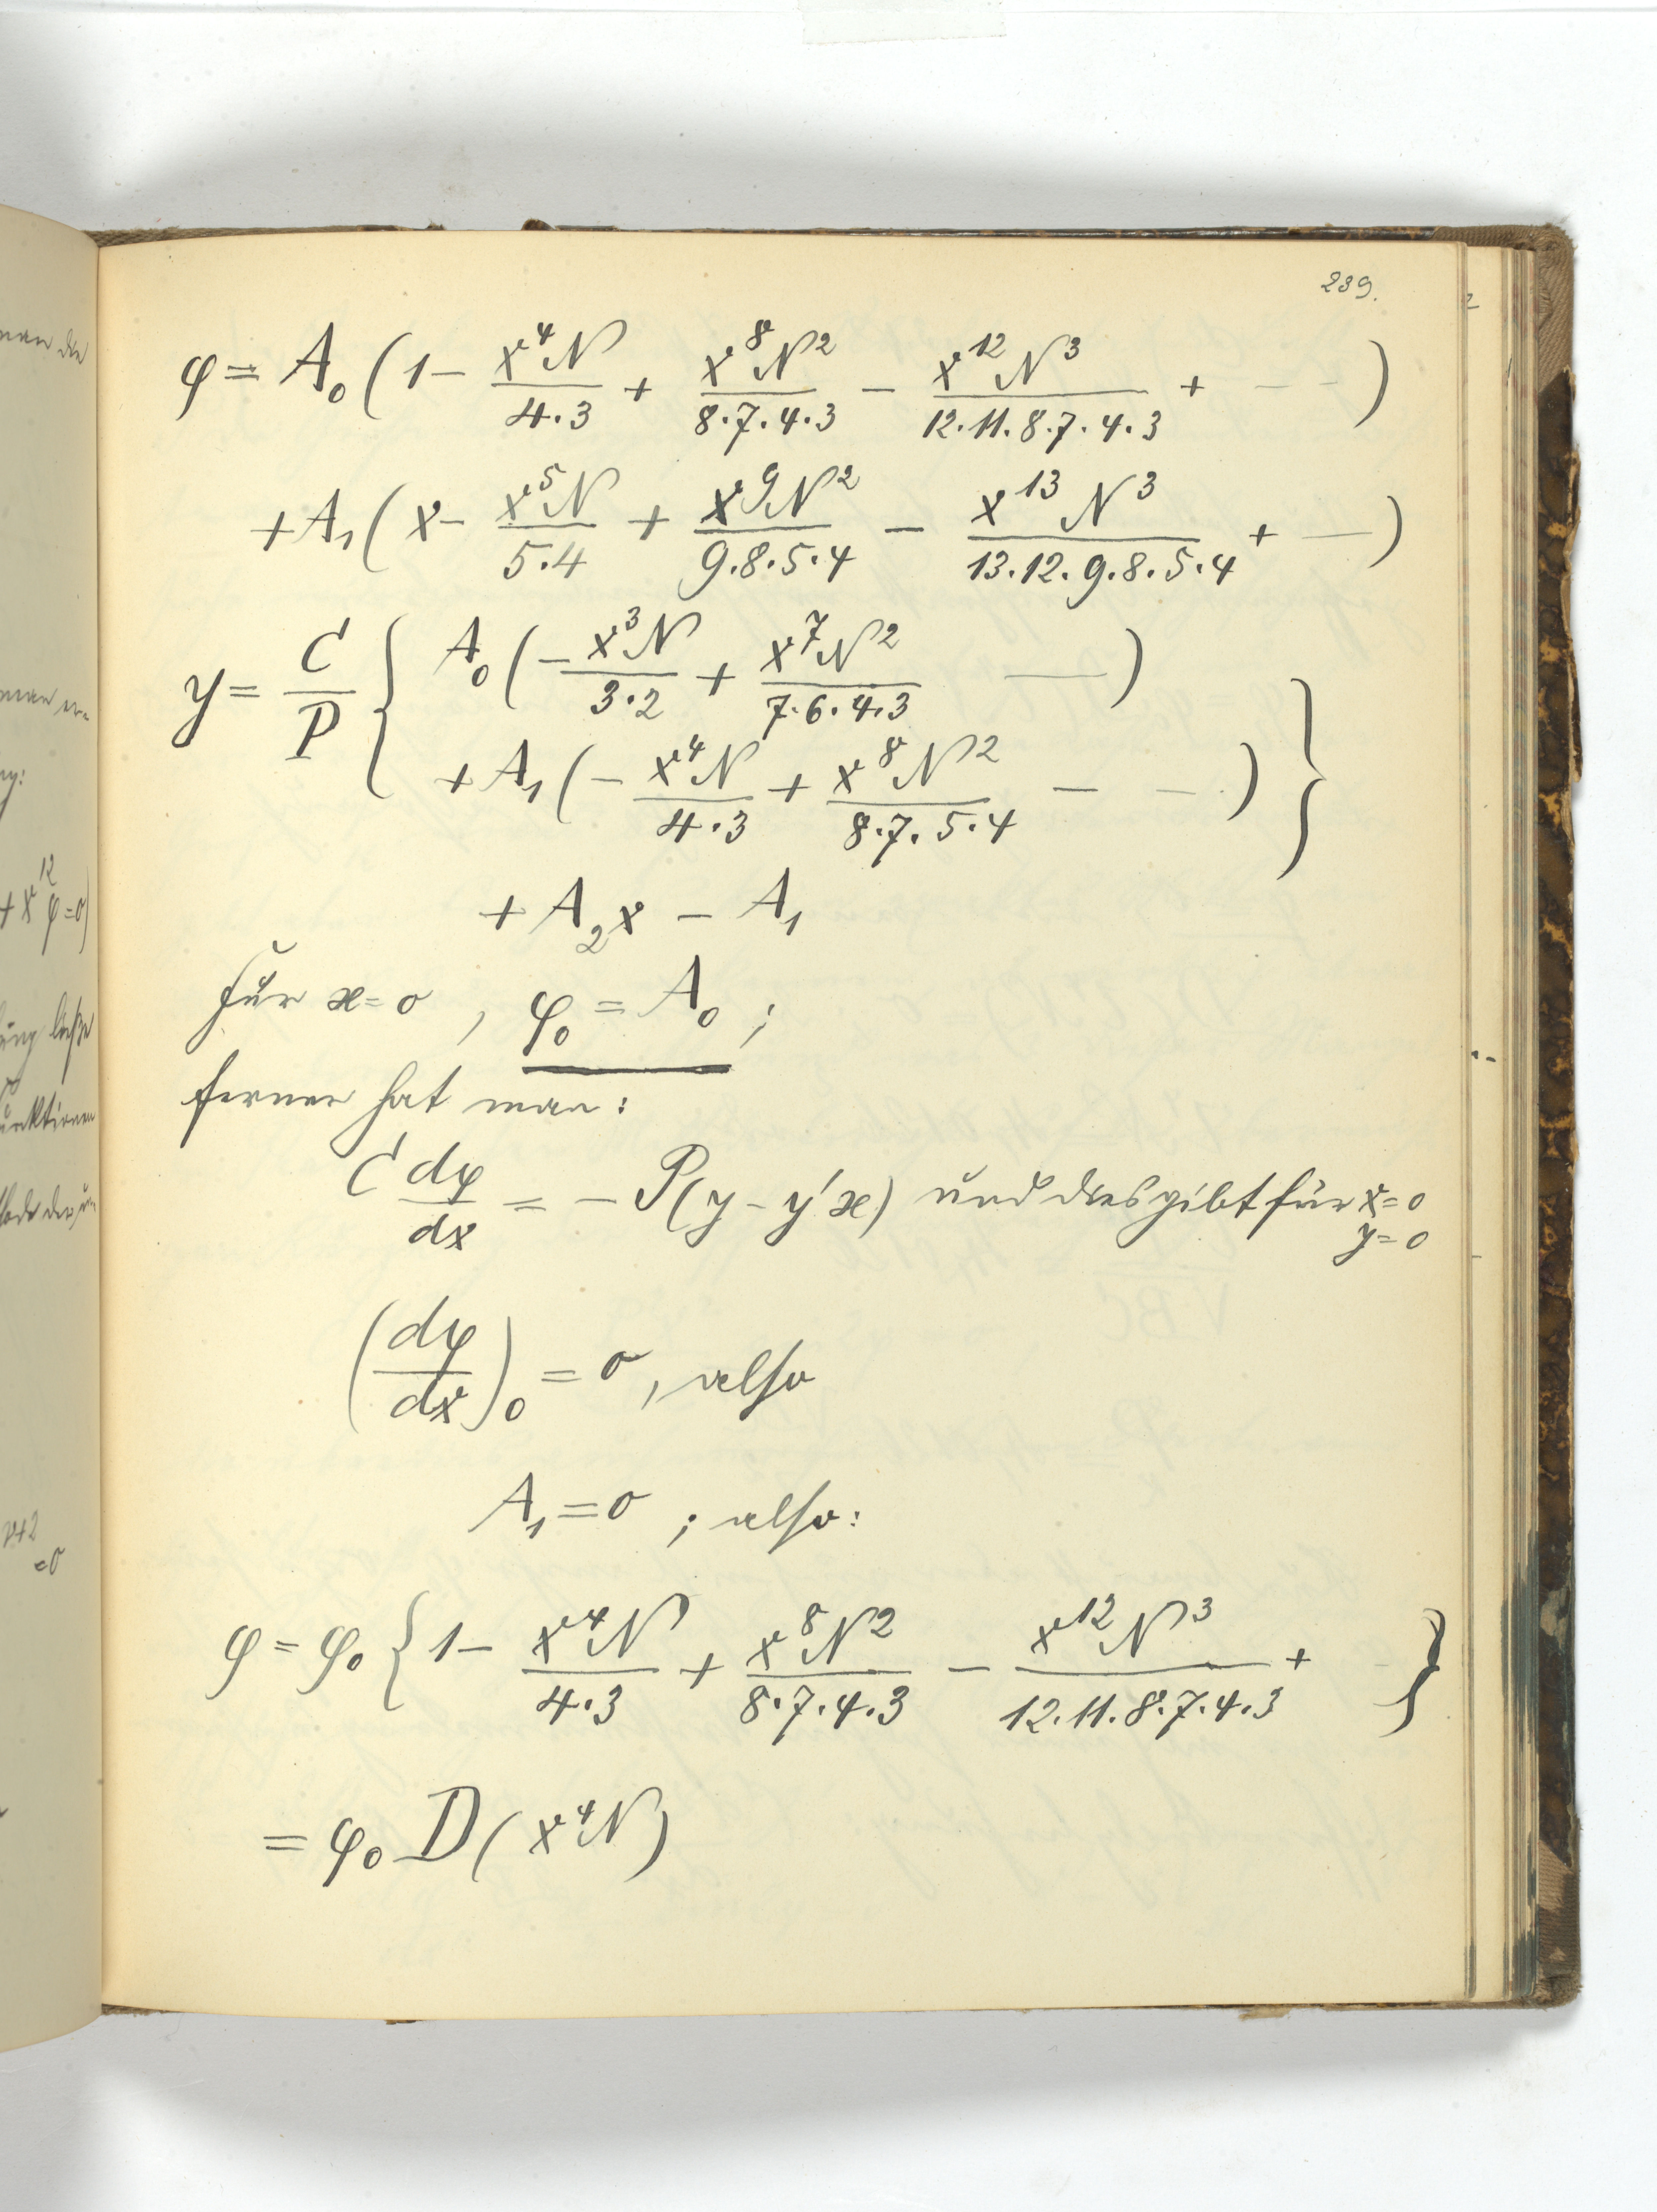 239.
φ = A₀ (1 − x⁴N / 4·3 + x⁸N² / 8·7·4·3 − x¹²N³ / 12·11·8·7·4·3 + – – )
+ A₁ ( x − x⁵N / 5·4 + x⁹N² / 9·8·5·4 − x¹³N³ / 13·12·9·8·5·4 + — )
y = C / P { A₀ ( − x³N / 3·2 + x⁷N² / 7·6·4·3 — )
+ A₁ ( − x⁴N / 4·3 + x⁸N² / 8·7·5·4 − – ) }
+ A₂x − A₁
für x = 0 , φ₀ = A₀ ;
ferner hat man:
C dφ / dx = − P(y − y'x) und dies gibt für x = 0
y = 0
(dφ / dx)₀ = 0 , also
A₁ = 0 ; also:
φ = φ₀ { 1 − x⁴N / 4·3 + x⁸N² / 8·7·4·3 − x¹²N³ / 12·11·8·7·4·3 + – }
= φ₀ D( x⁴N )